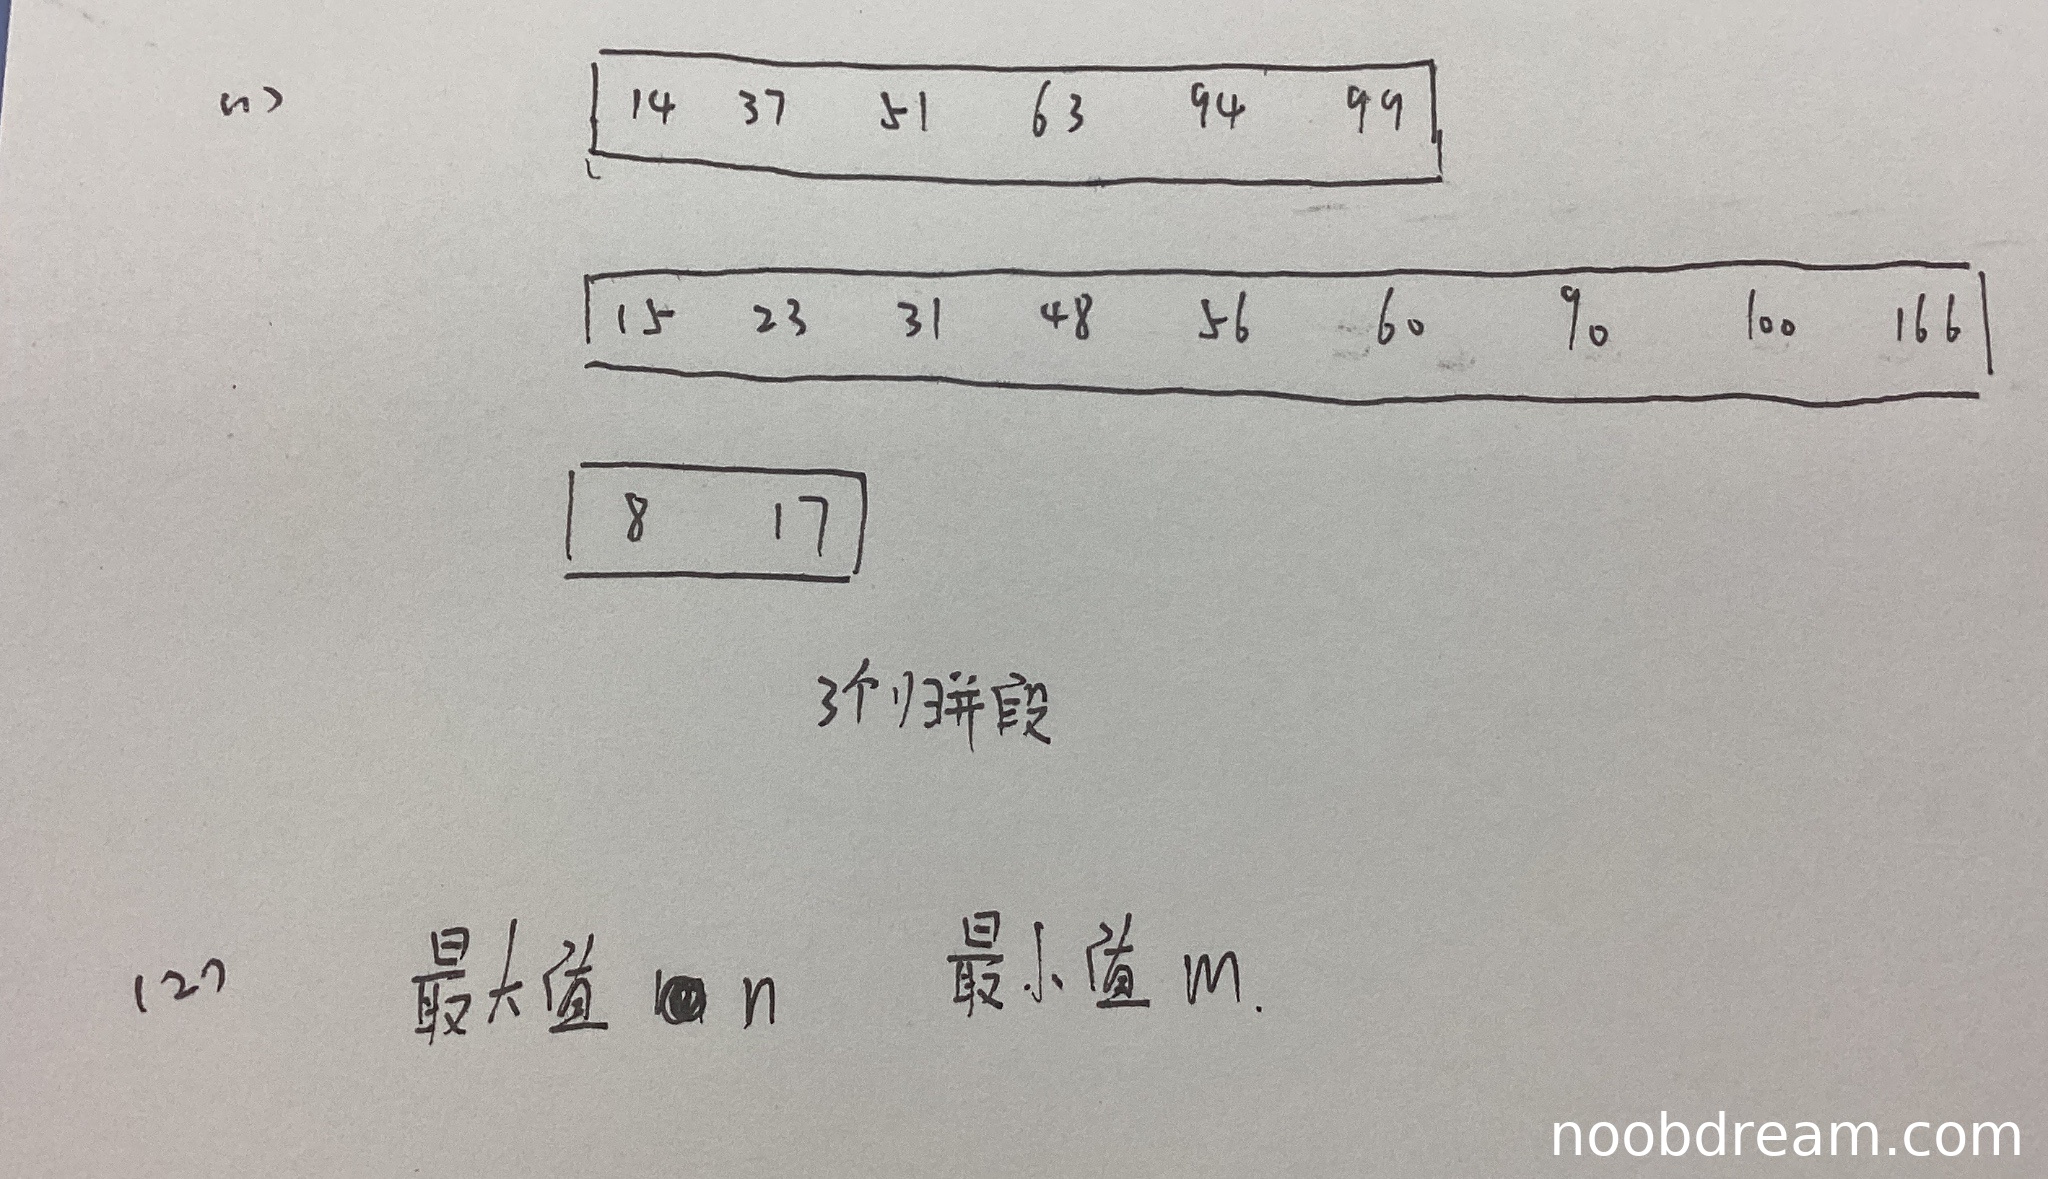 (1) 14 37 51 63 94 99
15 23 31 48 56 60 90 100 166
8 17
3个归并段
(2) 最大值 n 最小值 m.
noobdream.com